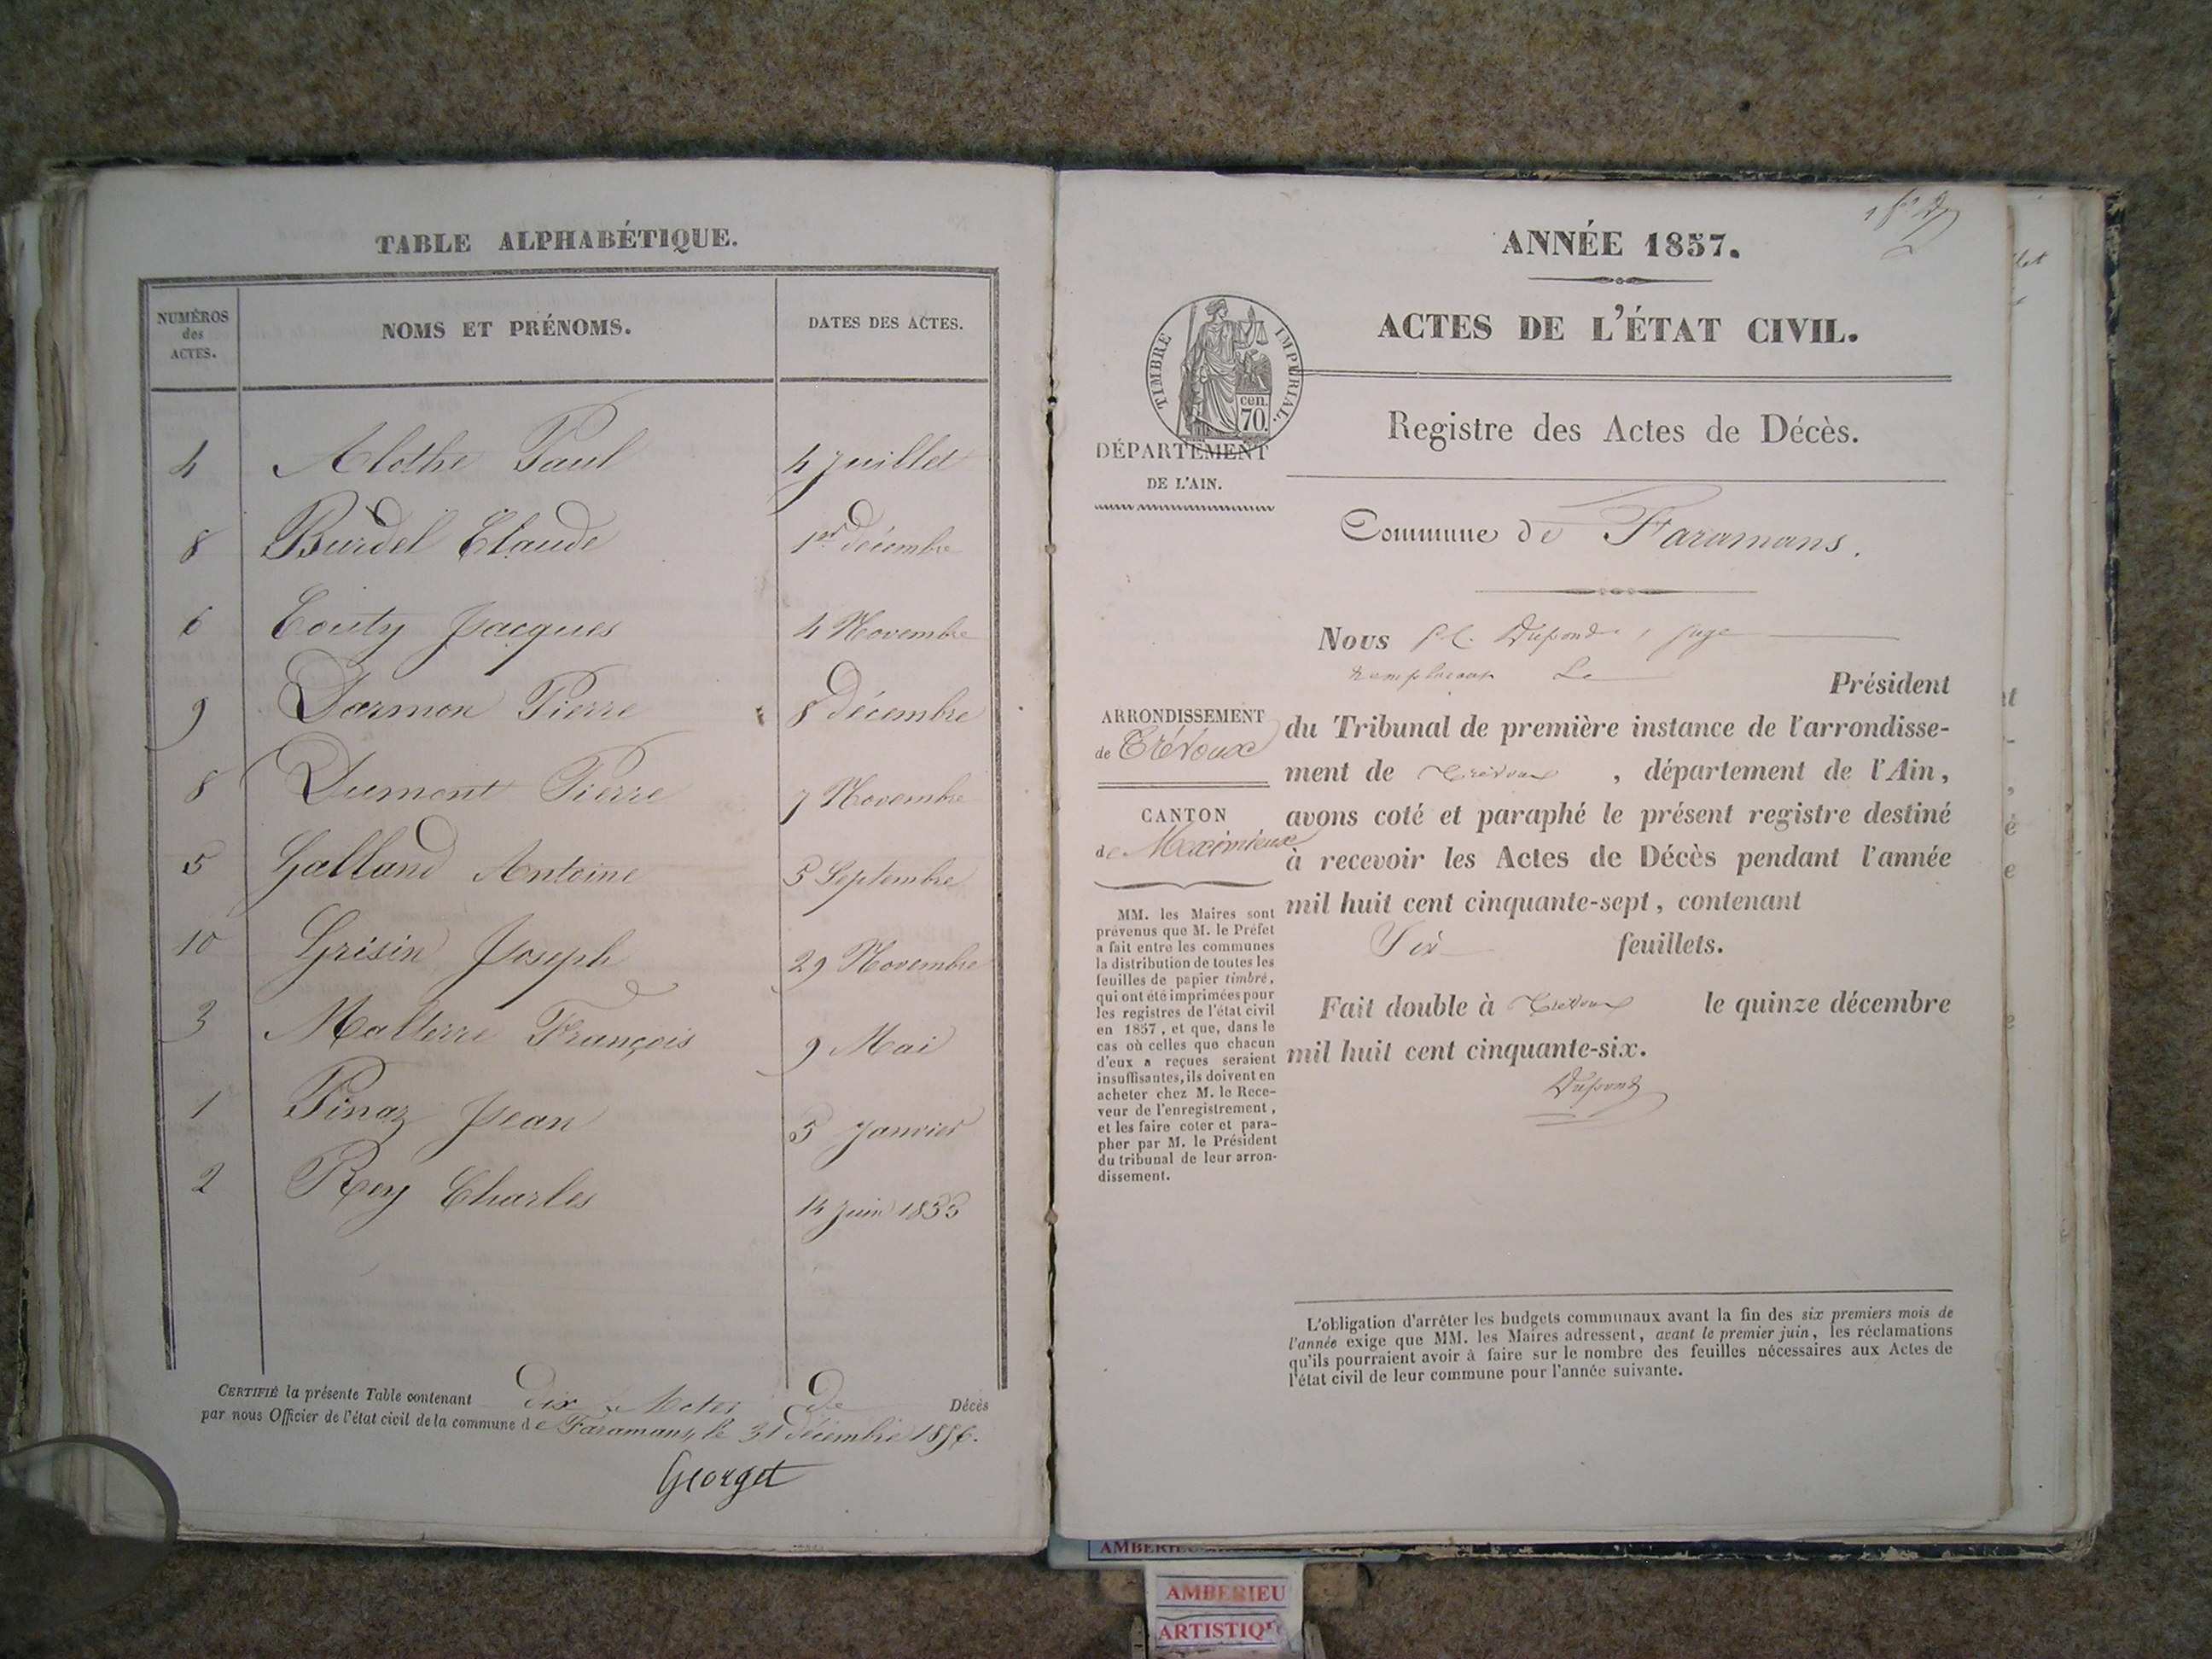 TABLE ALPHABÉTIQUE.
NUMÉROS des ACTES. NOMS ET PRÉNOMS. DATES DES ACTES.
4 Alothe Paul 4 Juillet
8 Burdel Claude 1er décembre
6 Couty Jacques 4 Novembre
9 Darmon Pierre 8 décembre
8 Dumont Pierre 7 Novembre
5 Galland Antoine 5 Septembre
10 Grisin Joseph 29 Novembre
3 Malterre François 9 Mai
1 Pinaz Jean 5 Janvier
2 Rey Charles 14 Juin 1855
CERTIFIÉ la présente Table contenant dix Actes de Décès
par nous Officier de l'état civil de la commune de Faramans, le 31 décembre 1856.
Georget
ANNÉE 1857.
ACTES DE L'ÉTAT CIVIL.
TIMBRE IMPÉRIAL.
cen.
70.
Registre des Actes de Décès.
DÉPARTEMENT
DE L'AIN.
Commune de Faramans.
Nous Dupond, Juge
remplaçant Le Président
ARRONDISSEMENT
de Trévoux
CANTON
de Meximieux
du Tribunal de première instance de l'arrondisse-
ment de Trévoux, département de l'Ain,
avons coté et paraphé le présent registre destiné
à recevoir les Actes de Décès pendant l'année
mil huit cent cinquante-sept, contenant
Six feuillets.
Fait double à Trévoux le quinze décembre
mil huit cent cinquante-six.
Dupond
MM. les Maires sont
prévenus que M. le Préfet
a fait entre les communes
la distribution de toutes les
feuilles de papier timbré,
qui ont été imprimées pour
les registres de l'état civil
en 1857, et que, dans le
cas où celles que chacun
d'eux a reçues seraient
insuffisantes, ils doivent en
acheter chez M. le Rece-
veur de l'enregistrement,
et les faire coter et para-
pher par M. le Président
du tribunal de leur arron-
dissement.
L'obligation d'arrêter les budgets communaux avant la fin des six premiers mois de
l'année exige que MM. les Maires adressent, avant le premier juin, les réclamations
qu'ils pourraient avoir à faire sur le nombre des feuilles nécessaires aux Actes de
l'état civil de leur commune pour l'année suivante.
AMBERIEU
AMBERIEU
ARTISTIQ